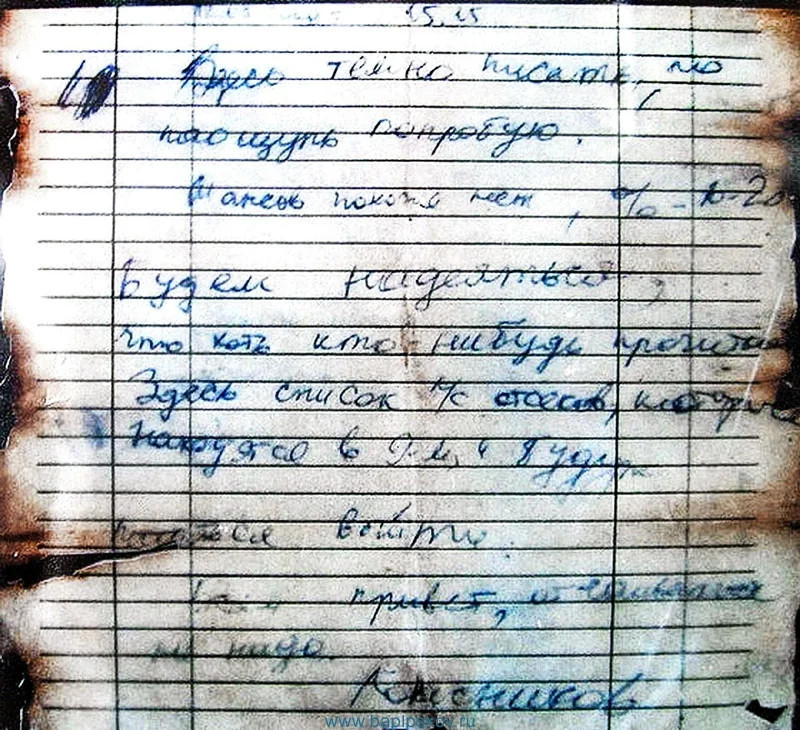 15.15
Здесь темно писать, но
наощупь попробую.
Шансов похоже нет, % - 10-20
Будем надеяться,
что хоть кто-нибудь прочитает
Здесь список л/с отсеков, которые
находятся в 9-м и будут
пытаться выйти.
Всем привет, отчаиваться
не надо.
Колесников
www.baplpskov.ru